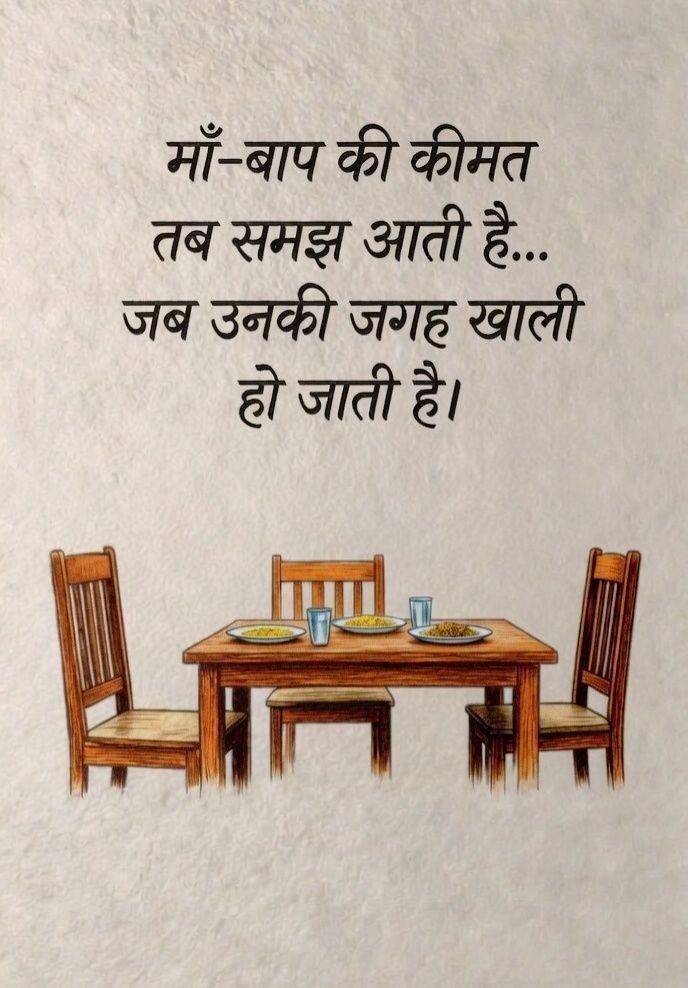 माँ-बाप की कीमत
तब समझ आती है...
जब उनकी जगह खाली
हो जाती है।